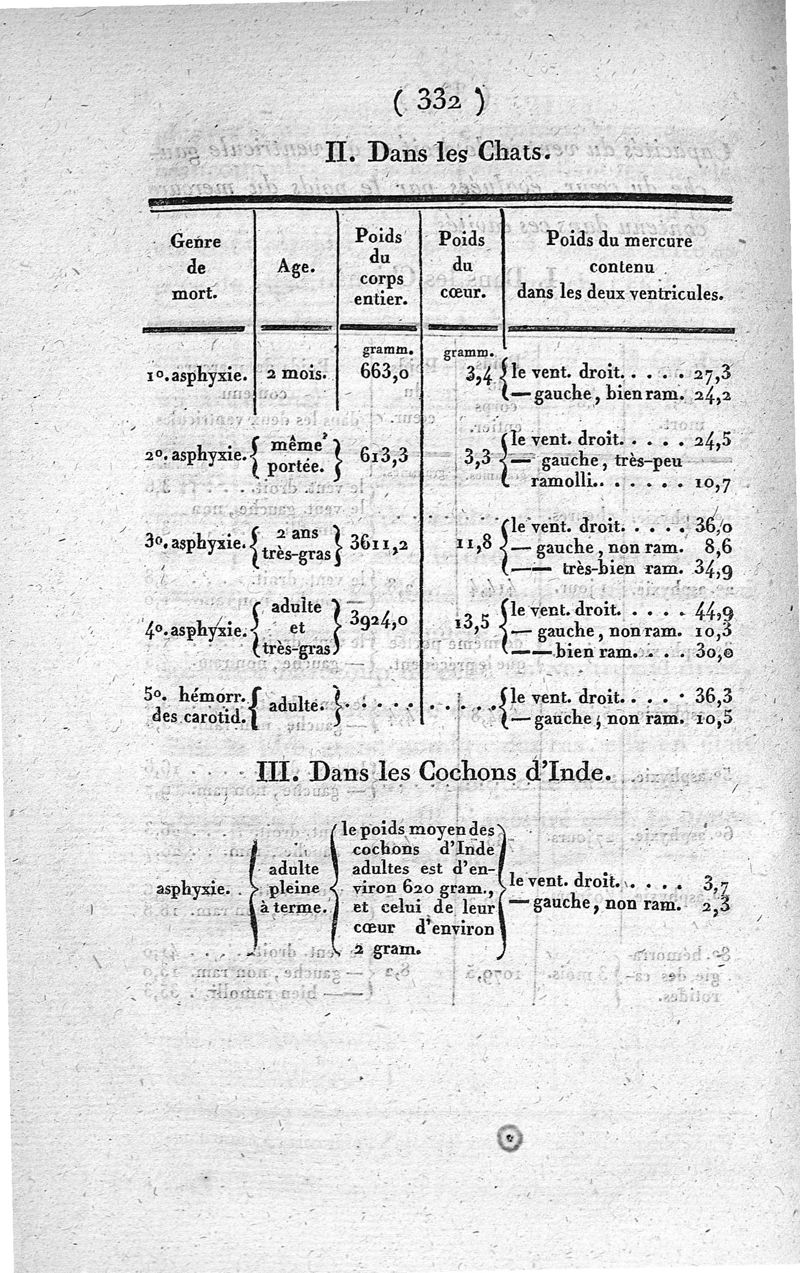 ( 332 )
II. Dans les Chats.
Genre de mort. Age. Poids du corps entier. Poids du cœur. Poids du mercure contenu dans les deux ventricules.
gramm. gramm.
1º. asphyxie. 2 mois. 663,0 3,4 le vent. droit. . . . . 27,3
— gauche, bien ram. 24,2
2º. asphyxie. même portée. 613,3 3,3 le vent. droit. . . . . 24,5
— gauche, très-peu
ramolli. . . . . . . 10,7
3º. asphyxie. 2 ans très-gras 3611,2 11,8 le vent. droit. . . . . 36,0
— gauche, non ram. 8,6
—— très-bien ram. 34,9
4º. asphyxie. adulte et très-gras 3924,0 13,5 le vent. droit. . . . . 44,9
— gauche, non ram. 10,3
—— bien ram. . . . 30,0
5º. hémorr. des carotid. adulte. . . . . . . . . . . le vent. droit. . . . . 36,3
— gauche, non ram. 10,5
III. Dans les Cochons d'Inde.
asphyxie. . adulte pleine à terme. le poids moyen des
cochons d'Inde
adultes est d'en-
viron 620 gram.,
et celui de leur
cœur d'environ
2 gram.
le vent. droit. . . . . 3,7
— gauche, non ram. 2,3